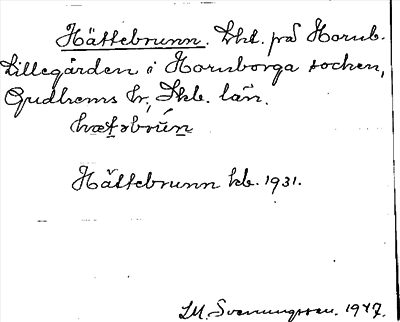 Hättebrunn. Lht. på Hornb.
Lillegården i Hornborga socken,
Gudhems hr, Skb. län.
Hättebrunn kb. 1931.
S. M. Svenungsson. 1947.